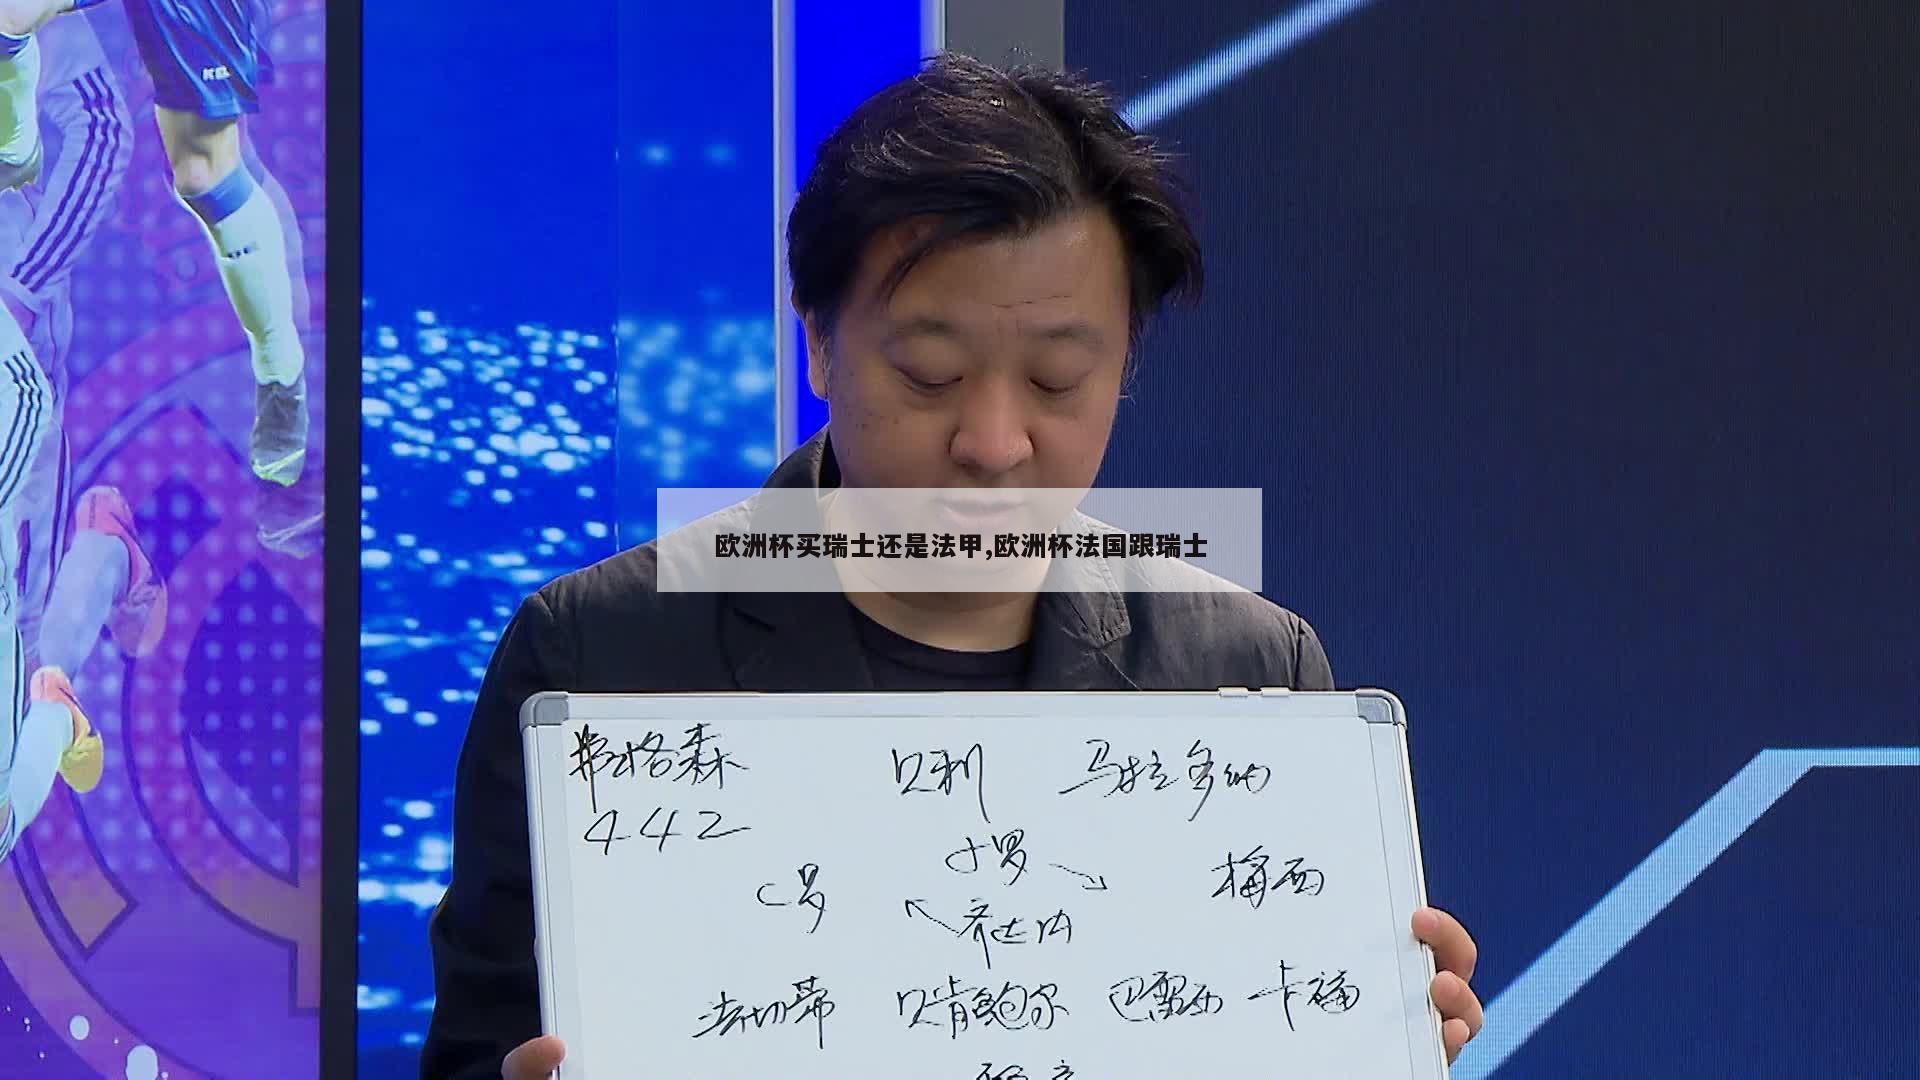 欧洲杯买瑞士还是法甲,欧洲杯法国跟瑞士
弗格森 贝利 马拉多纳
442
小罗
C罗 梅西
齐达内
法切蒂 贝肯鲍尔 巴雷西 卡福